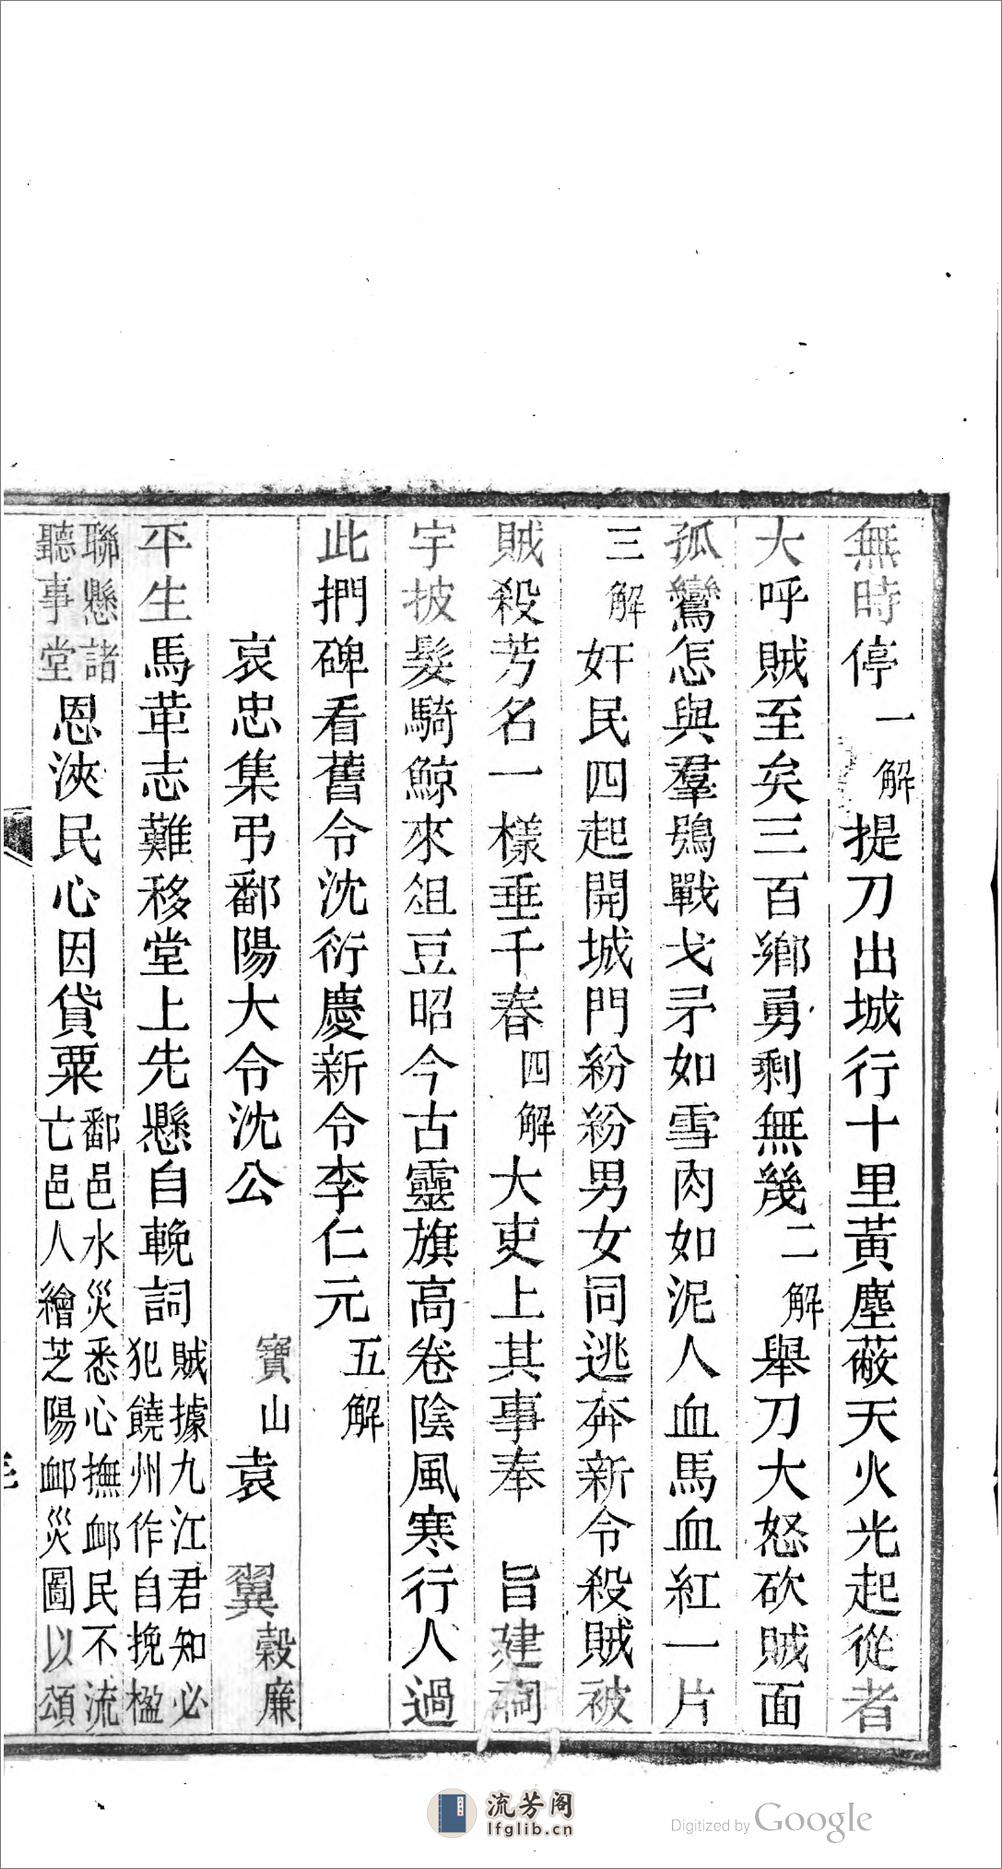 無時停一解提刀出城行十里黃塵蔽天火光起從者
大呼賊至矣三百鄉勇剩無幾二解舉刀大怒砍賊面
孤鸞怎與羣鴉戰戈矛如雪肉如泥人血馬血紅一片
三解奸民四起開城門紛紛男女同逃奔新令殺賊被
賊殺芳名一樣垂千春四解大吏上其事奉　旨建祠
宇披髮騎鯨來俎豆昭今古靈旗高卷陰風寒行人過
此捫碑看舊令沈衍慶新令李仁元五解
哀忠集弔鄱陽大令沈公　寶山袁　翼穀廉
平生馬革志難移堂上先懸自輓詞賊據九江君知必犯饒州作自挽楹
聯懸諸聽事堂恩浹民心因貸粟鄱邑水災悉心撫卹民不流亡邑人繪芝陽卹災圖以頌
流芳阁
lfglib.cn
Digitized by Google